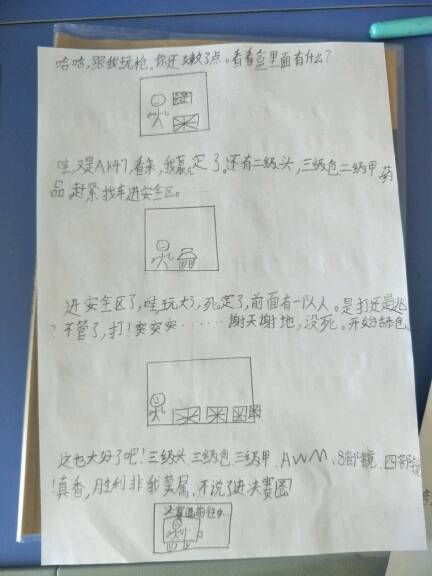 哈哈,跟我玩枪,你还嫩了点。看看盒里面有什么?
哇,又是AK47,看来,我赢定了。还有二级头,三级包二级甲,药
品。赶紧找车进安全区。
进安全区了,哇玩大了,死定了,前面有一队人。是打还是逃
?不管了,打!突突突……谢天谢地,没死。开始舔包。
这也太好了吧!三级头、三级包、三级甲、AWM、8倍镜、四倍镜
!真香,胜利非我莫属、不说了进决赛圈
决赛圈前往中…